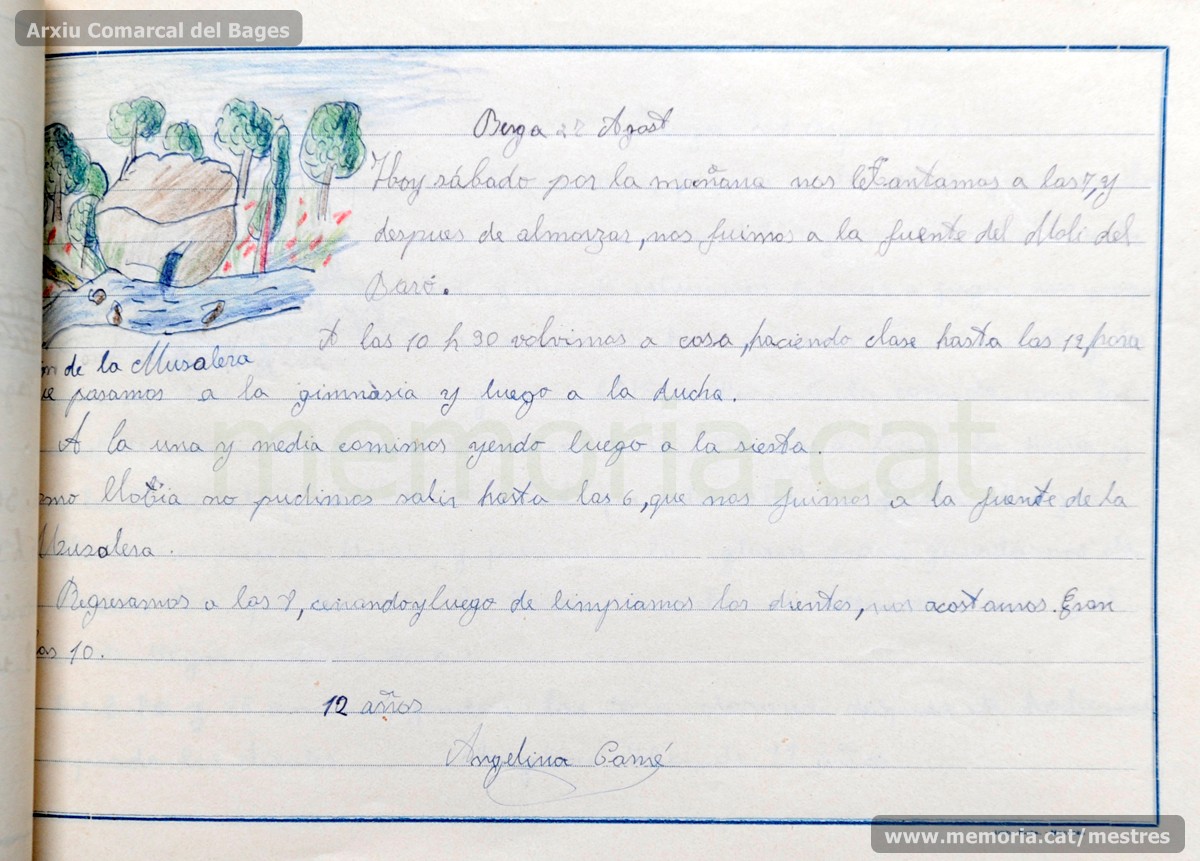 Arxiu Comarcal del Bages
Berga 27 Agost
Hoy sábado por la mañana nos a las 7, y
despues de almorzar, nos fuimos a la fuente del Moli del
Baró.
A las 10 h 30 volvimos a casa, haciendo clase hasta las 12, para
de la Musalera
pasamos a la gimnàsia y luego a la ducha.
A la una y media comimos yendo luego a la siesta.
no pudimos salir hasta las 6, que nos fuimos a la fuente de la
Musalera.
Regresamos a las 8, cenando y luego de limpiamos los dientes, nos acostamos. Eran
las 10.
12 años
Angelina
memoria.cat
www.memoria.cat/mestres